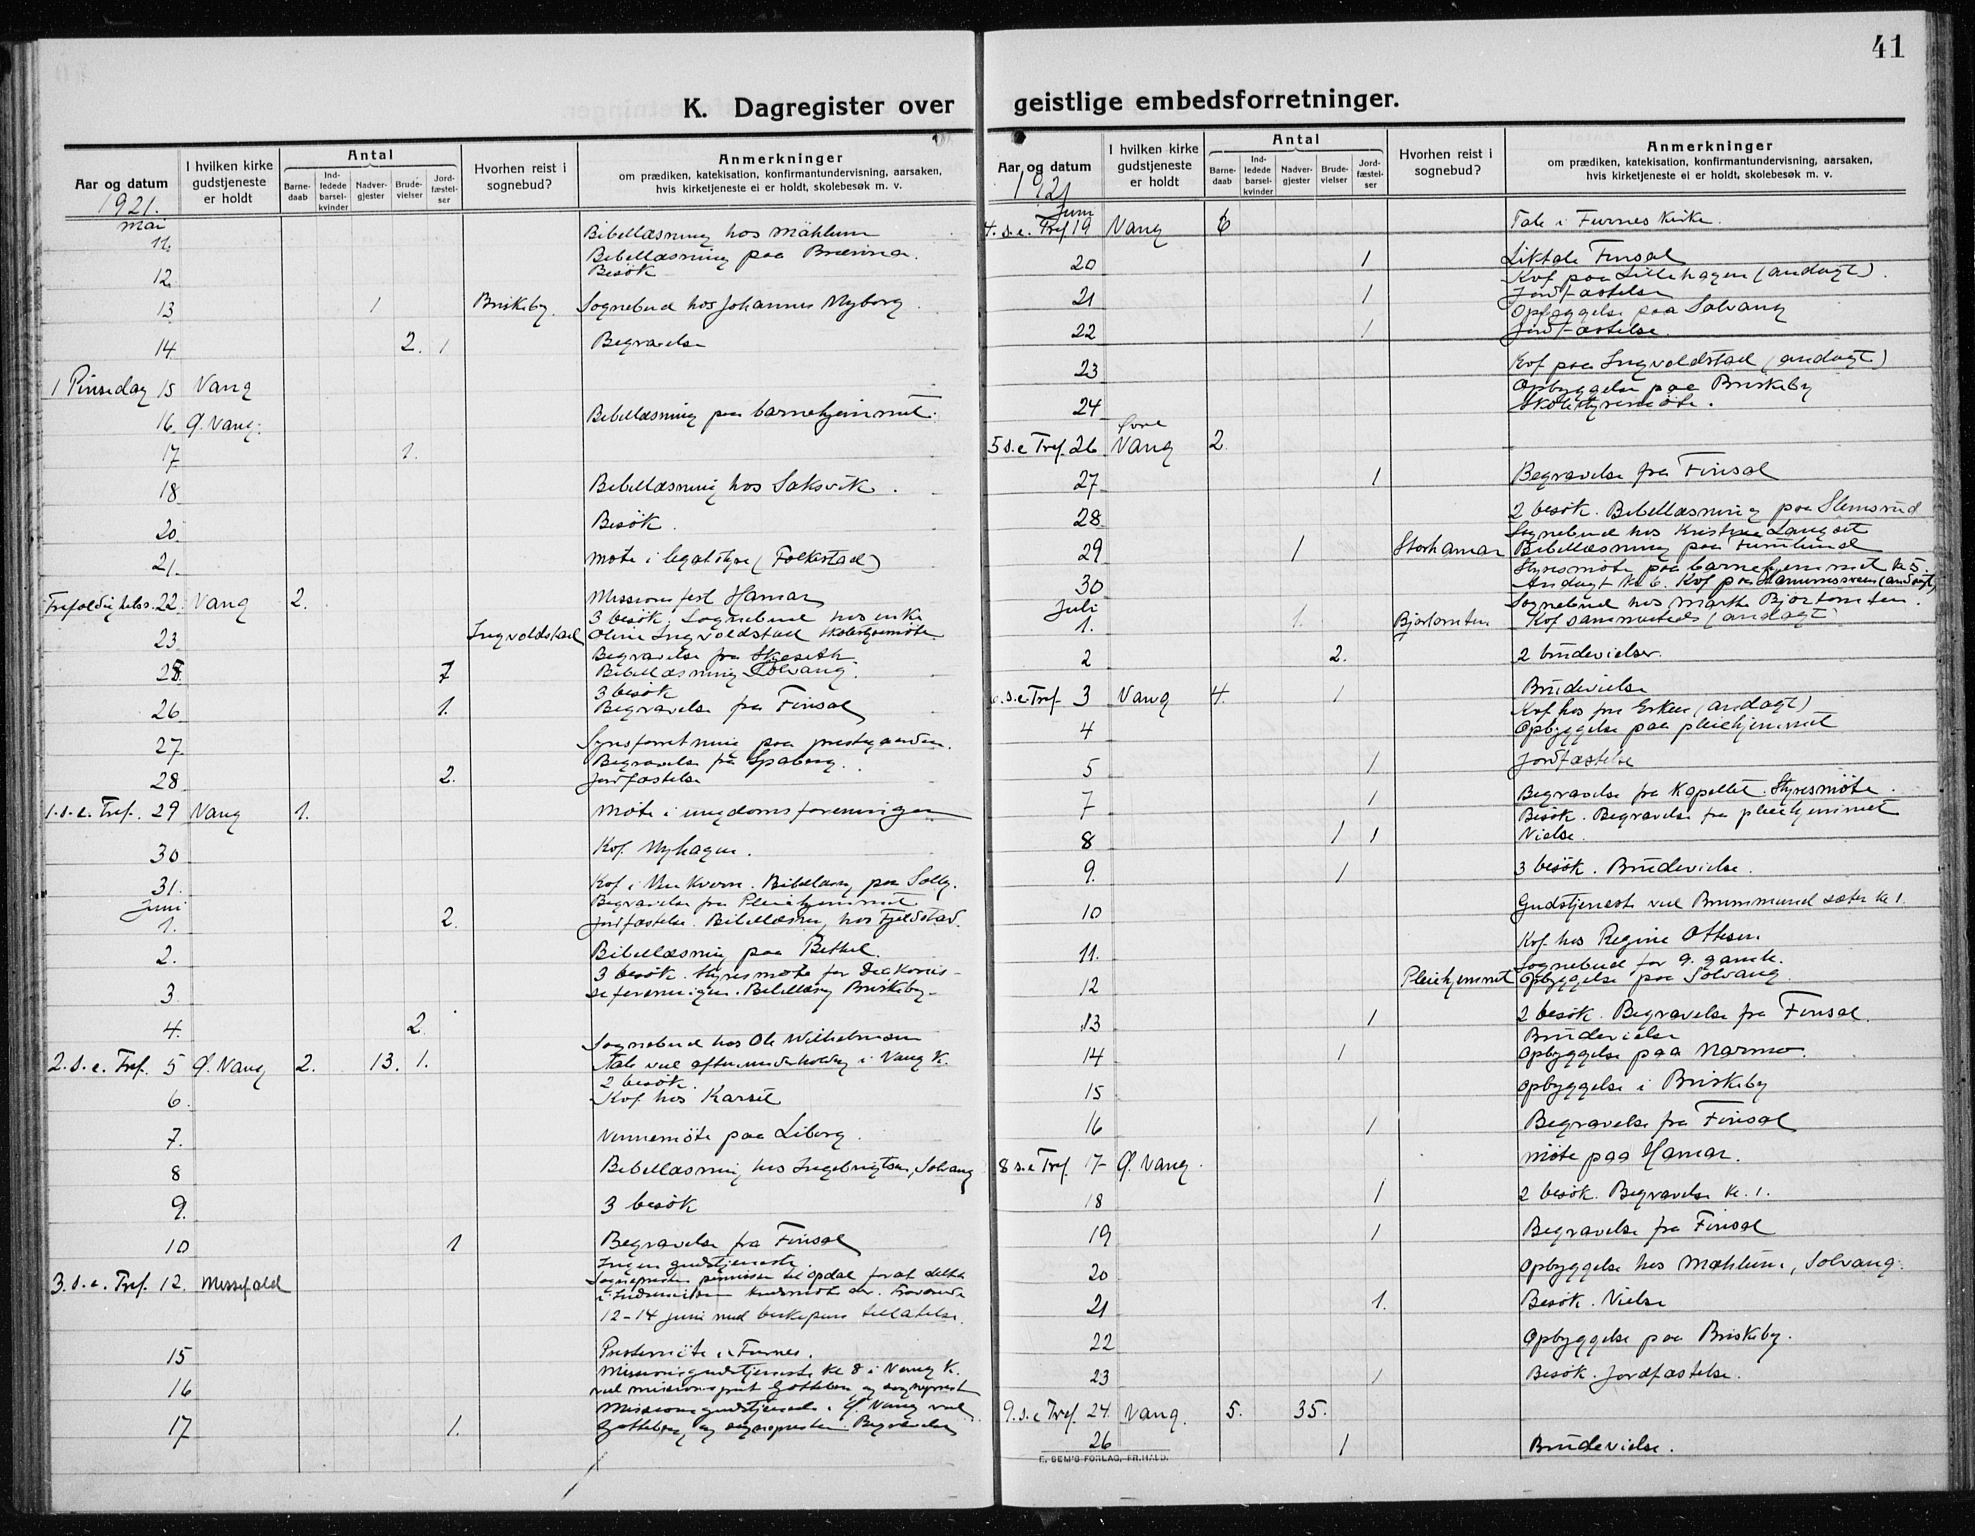 41
K. Dagregister over geistlige embedsforretninger.
Aar og datum
I hvilken kirke gudstjeneste er holdt
Antal
Barne-daab
Ind-ledede barsel-kvinder
Nadver-gjester
Brude-vielser
Jord-fæstel-ser
Hvorhen reist i sognebud?
Anmerkninger
om prædiken, katekisation, konfirmantundervisning, aarsaken, hvis kirketjeneste ei er holdt, skolebesøk m. v.
1921.
mai
11. Bibellæsning hos Mæhlum
Bibellæsning paa
12. Besök
13 1 Briskeby. Sognebud hos Johannes Nyborg
14 2. 1 Begravelse
1 Pinsedag 15 Vang
16. Ø. Vang. Bibellæsning paa barnehjemmet.
17 1.
18 Bibellæsning hos Saksvik.
20. Besök.
21. Møte i legatstyre (Folkestad)
Trefoldighetss. 22. Vang 2. Missionsfest Hamar
3 besök. Sognebud hos enke
23 Ingvoldstad Oline Ingvoldstad skolestyremöte
Begravelse fra Skeseth.
25. 7 Bibellæsning Solvang.
3 besök
26 1. Begravelse fra Finsal
27. Synsforretning paa prestegaarden.
Begravelse fra Spaberg.
28 2. Jordfæstelse
1. s. e. Tref. 29 Vang 1. Møte i ungdomsforeningen
30 Kof. Nyhagen.
31. Kof i Kvern. Bibellæsn. paa Solby.
Juni Begravelse fra Pleiehjemmet
1. 2. Jordfæstelse. Bibellæsning hos Fjeldstad.
2. Bibellæsning paa Bethel.
3 besök. Styresmøte for Diakonis-
3 seforeningen. Bibellæsn. Briskeby.
4. 2.
Sognebud hos Ole Wilhelmsen
2. s. e. Tref. 5 Ø. Vang 2. 13. 1. Tale ved aftenunderholdn. i Vang K.
2 besök.
6. Kof. hos Karset
7. Vennemöte paa Liberg.
8 Bibellæsning hos Ingebrigtsen, Solvang
9. 3 besök
10 1 Begravelse fra Finsal
Ingen gudstjeneste.
3. s. e. Tref. 12. Messefald Sognepresten til Opdal forat delta
12-14 juni med biskopens tillatelse.
15 Prestemöte i Furnes.
Missionsgudstjeneste kl 8 i Vang K.
16 ved missionsprest og sogneprest
Missionsgudstjeneste i Ø. Vang ved
17 1. og sognepresten. Begravelse
Aar og datum
I hvilken kirke gudstjeneste er holdt
Antal
Barne-daab
Ind-ledede barsel-kvinder
Nadver-gjester
Brude-vielser
Jord-fæstel-ser
Hvorhen reist i sognebud?
Anmerkninger
om prædiken, katekisation, konfirmantundervisning, aarsaken, hvis kirketjeneste ei er holdt, skolebesøk m. v.
1921
Juni
4. s. e. Tref 19 Vang 6 Tale i Furnes Kirke.
20 1 Liktale Finsal
Kof paa Lillehagen (andagt).
21 1 Jordfæstelse
Opbyggelse paa Solvang
22 1 Jordfæstelse.
23 Kof paa Ingvoldstad (andagt)
Opbyggelse paa Briskeby
24 Skolestyremöte.
5 s. e Tref. 26 Øvre Vang 2.
27 1 Begravelse fra Finsal
28 2 besök. Bibellæsning paa Slemsrud
Sognebud hos Kristine Langset
29 1 Storhamar Bibellæsning paa Furulund
Styresmöte paa barnehjemmet kl 5.
30 Andagt kl 6. Kof paa (andagt)
Juli Sognebud hos Marthe Bjortomten.
1. 1. Bjortomten Kof sammesteds (andagt)
2 2. 2 brudevielser.
6. s. e Tref. 3 Vang 4. 1 Brudevielse
Kof hos fru (andagt)
4 Opbyggelse paa pleiehjemmet
5 1 Jordfæstelse
7 1 Begravelse fra Kapellet. Styresmöte.
Besök. Begravelse fra pleiehjemmet
8 1 1 Vielse.
9. 1 3 besök. Brudevielse.
10 Gudstjeneste ved Brummund sæter kl 1.
11. Kof. hos Regine Ottesen
Sognebud for 9 gamle.
12 Pleiehjemmet Opbyggelse paa Solvang
13 1 2 besök. Begravelse fra Finsal.
Brudevielse
14 1 Opbyggelse paa Narmo.
15 Opbyggelse i Briskeby
16 1 Begravelse fra Finsal
8 s. e Tref. 17 Ø. Vang. Möte paa Hamar.
18 1 2 besök. Begravelse kl. 1.
19 1 Begravelse fra Finsal
20 Opbyggelse hos Mæhlum, Solvang.
21 1. Besök. Vielse
22 Opbyggelse paa Briskeby.
23 1 Besök. Jordfæstelse.
9. s. e Tref. 24. Vang. 5. 35.
26 1 Brudevielse.
E. SEM'S FORLAG, FR.HALD.